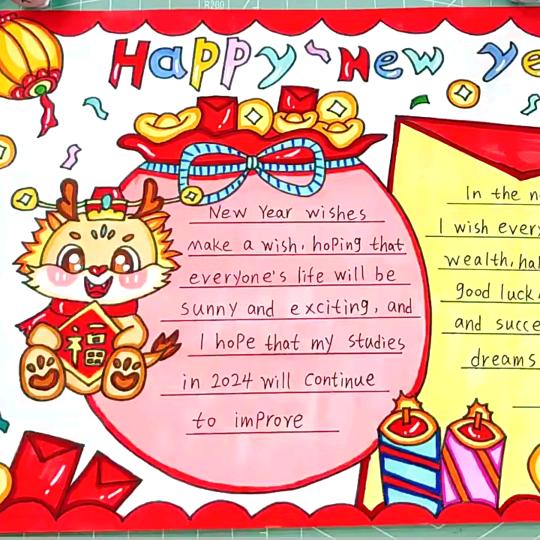 Happy New Ye
New Year wishes
make a wish, hoping that
everyone's life will be
sunny and exciting, and
I hope that my studies
in 2024 will continue
to improve
福
In the n
I wish every
wealth, ha
good luck
and succe
dreams